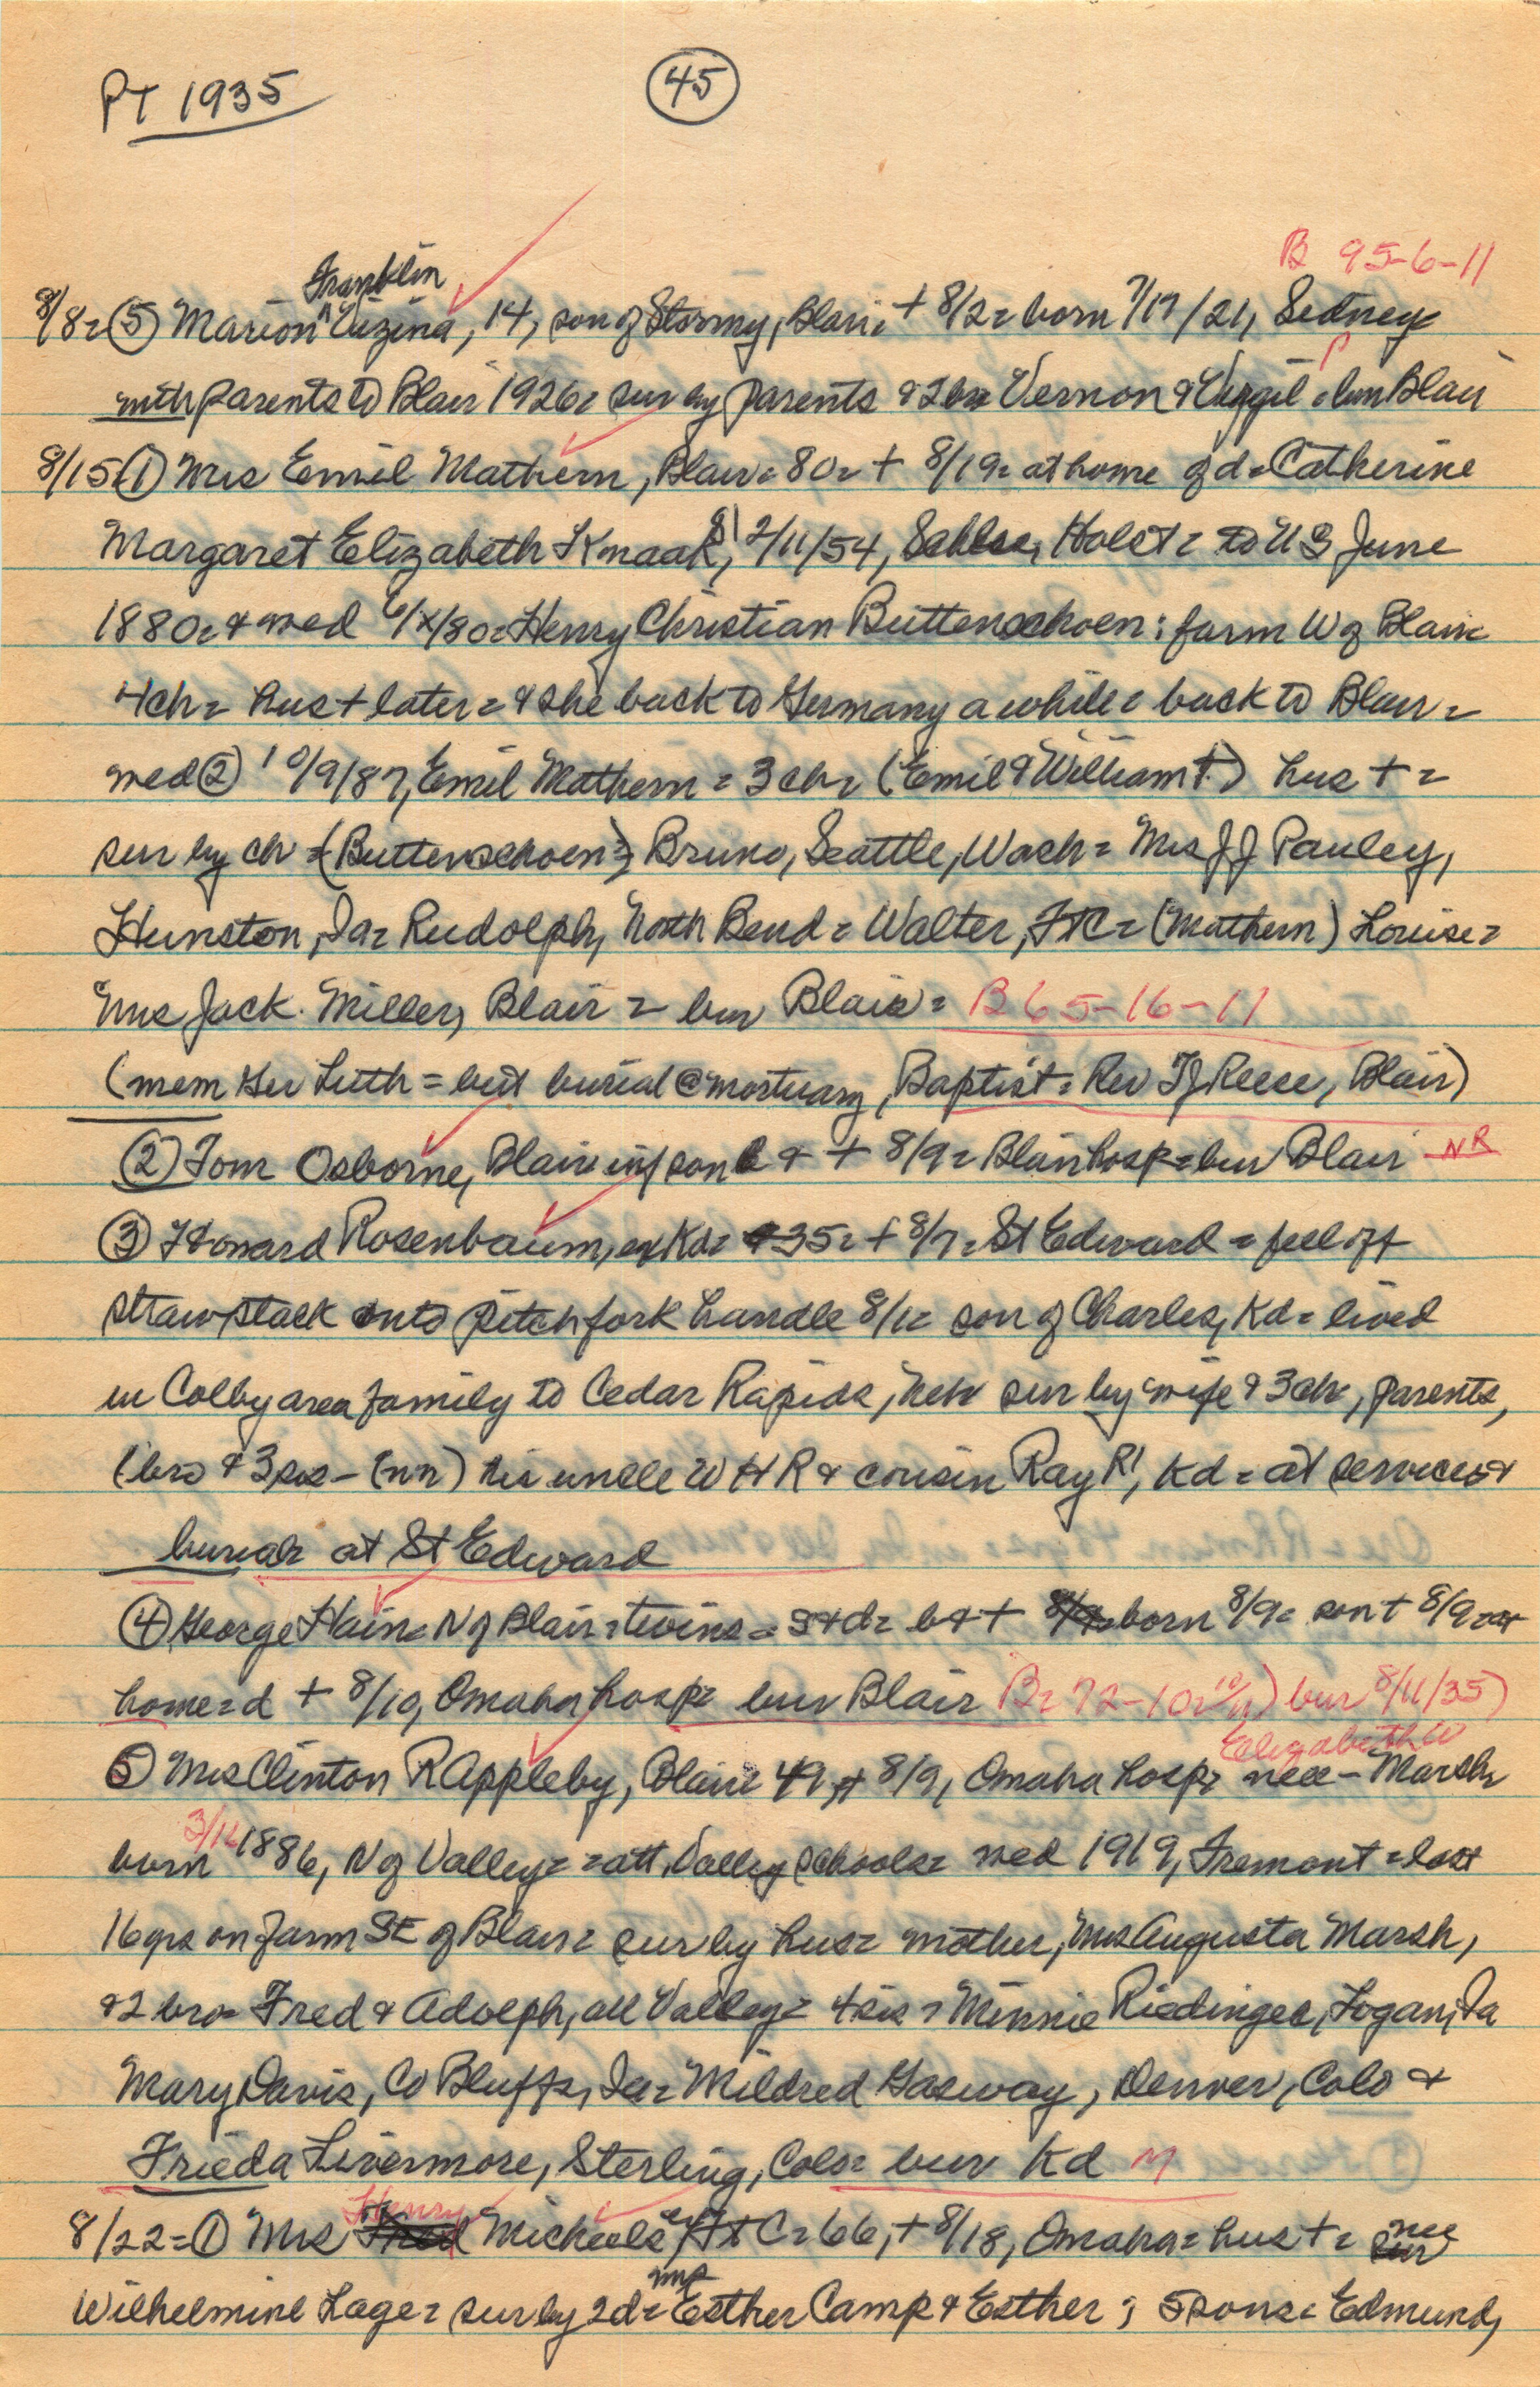 PT 1935
45
B 95-6-11
Franklin
8/8= ⑤ Marion ^ Vizina, 14, son of Stormy, Blair= + 8/2= born 7/17/21, Sidney=
with parents to Blair 1926= sur by parents & 2 bro Vernon & Virgil = bur Blair
8/15 ① Mrs Emil Mathern, Blair= 80= + 8/19= at home of d= Catherine
Margaret Elizabeth Kmaak, 81 2/11/54, Holst= to US June
1880= & med 6/x/80= Henry Christian Buttenschoen: farm W of Blair
4ch= hus + later= & she back to Germany a while= back to Blair=
med ② 10/9/87, Emil Mathern= 3 ch= (Emil & William +) hus +=
sur by ch= (Buttenschoen) Bruno, Seattle, Wash= Mrs J J Pauley,
Hunston, Ia= Rudolph, North Bend= Walter, FtC= (Mathern) Louise=
Mrs Jack Miller, Blair= bur Blair= B 65-16-11
(mem Ger Luth= but burial @ mortuary, Baptist= Rev Reece, Blair)
② Tom Osborne, Blair inf son b & + 8/9= Blair hosp= bur Blair NR
③ Howard Rosenbaum, ex Kd= 35= + 8/7= St Edward= fell off
straw stack onto pitchfork handle 8/1= son of Charles, Kd= lived
in Colby area family to Cedar Rapids, Neb= sur by wife & 3 ch, parents,
1 bro & 3 sis - (nn) his uncle W H R & cousin Ray R, Kd= at services &
burial= at St Edward
④ George Hain= N of Blair= twins= s & d= b & + born 8/9= son + 8/9= at
home= d + 8/10, Omaha hosp= bur Blair B= 72-10= 10/11) bur 8/11/35)
Elizabeth W
⑤ Mrs Clinton R Appleby, Blair= 49, + 8/9, Omaha hosp= nee - Marsh
born 3/16 1886, N of Valley= = att Valley schools= med 1919, Fremont= last
16 yrs on farm SE of Blair= sur by hus= mother, Mrs Augusta Marsh,
& 2 bro= Fred & Adolph, all Valley= 4 sis= Minnie Riedinger, Logan, Ia
Mary Davis, Co Bluffs, Ia= Mildred Gasway, Denver, Colo &
Frieda Livermore, Sterling, Colo= bur Kd M
Henry
8/22= ① Mrs Fred Micheels, ex FtC= 66, + 8/18, Omaha= hus += nee
Wilhelmine Lage= sur by 2d= Mrs Esther Camp & Esther; 5 sons= Edmund,